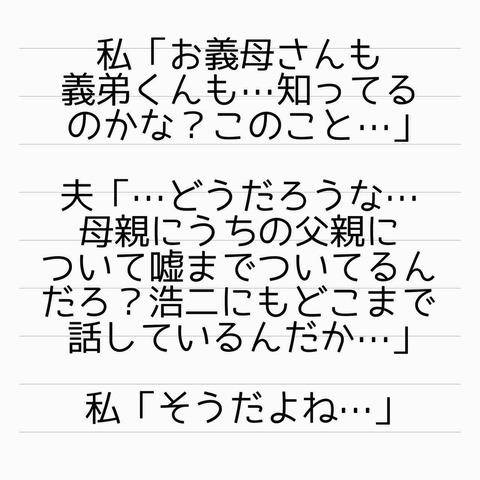 私「お義母さんも
義弟くんも…知ってる
のかな？このこと…」
夫「…どうだろうな…
母親にうちの父親に
ついて嘘までついてるん
だろ？浩二にもどこまで
話しているんだか…」
私「そうだよね…」